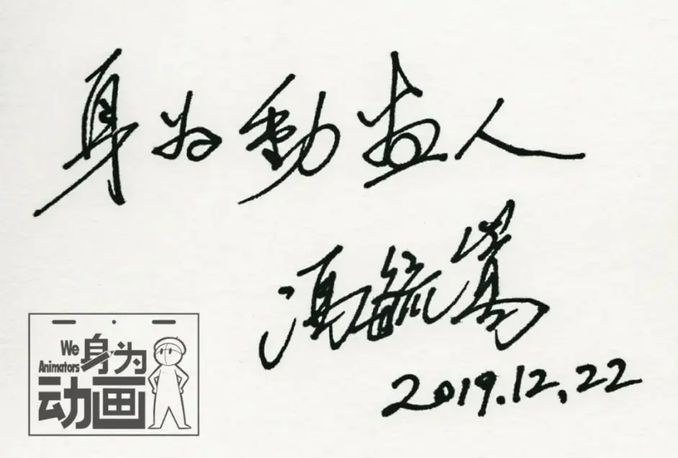 身为動画人
冯毓嵩
2019.12.22
We
Animators
身为
动画